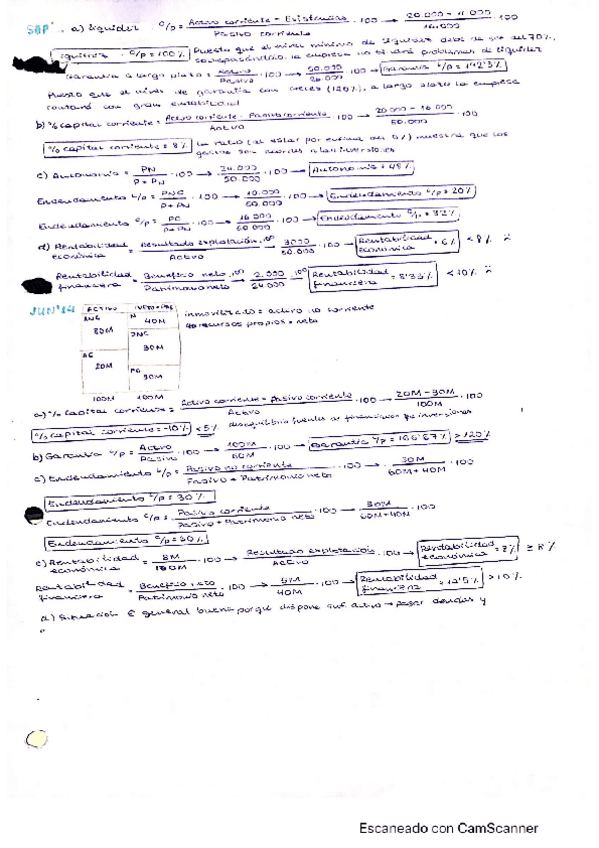 SEP' . a) Liquidez c/p = Activo corriente - Existencias / Pasivo corriente · 100 → 20.000 - 4.000 / 16.000 · 100
Liquidez c/p = 100% Puesto que el nivel mínimo de liquidez debe de ser del 70%,
la empresa no tendrá problemas de liquidez
Garantía a largo plazo = Activo / Pasivo · 100 → 50.000 / 26.000 · 100 → Garantía L/p = 192'3%
Puesto que el nivel de garantía con creces (120%), a largo plazo la empresa
contará con gran estabilidad
b) % Capital corriente = Activo corriente - Pasivo corriente / Activo · 100 → 20.000 - 16.000 / 50.000 · 100
% capital corriente = 8% La ratio (al estar por encima del 5%) muestra que los
son acordes a las inversiones
c) Autonomía = PN / P + PN · 100 → 24.000 / 50.000 · 100 → Autonomía = 48%
Endeudamiento L/p = PNC / P + PN · 100 → 10.000 / 50.000 · 100 → Endeudamiento L/p = 20%
Endeudamiento c/p = PC / P + PN · 100 → 16.000 / 50.000 · 100 → Endeudamiento c/p = 32%
d) Rentabilidad económica = Resultado explotación / Activo · 100 3000 / 50.000 · 100 → Rentabilidad económica = 6% < 8%
Rentabilidad financiera = Beneficio neto / Patrimonio neto · 100 2.000 / 24.000 · 100 Rentabilidad financiera = 8'33% < 10%
JUN'14
ACTIVO
ANC 80M
AC 20M
100M
N 40M
PNC 30M
PC 30M
100M
inmovilizado = activo no corriente
40 recursos propios = neto
a) % Capital corriente = Activo corriente - Pasivo corriente / Activo · 100 → 20M - 30M / 100M · 100
% capital corriente = -10% < 5% desequilibrio fuentes de financiación e inversiones
b) Garantía L/p = Activo / Pasivo · 100 → 100M / 60M · 100 → Garantía L/p = 166'67% > 120%
c) Endeudamiento L/p = Pasivo no corriente / Pasivo + Patrimonio neto · 100 → 30M / 60M + 40M · 100
Endeudamiento L/p = 30%
Endeudamiento c/p = Pasivo corriente / Pasivo + Patrimonio neto · 100 → 30M / 60M + 40M · 100
Endeudamiento c/p = 30%
c) Rentabilidad económica = 8M / 100M · 100 → Resultado explotación / Activo · 100 → Rentabilidad económica = 8% ≥ 8%
Rentabilidad financiera = Beneficio neto / Patrimonio neto · 100 → 5M / 40M · 100 → Rentabilidad financiera = 12'5% > 10%
d) Situación E general buena porque dispone suf. activo → pagar deudas y
Escaneado con CamScanner